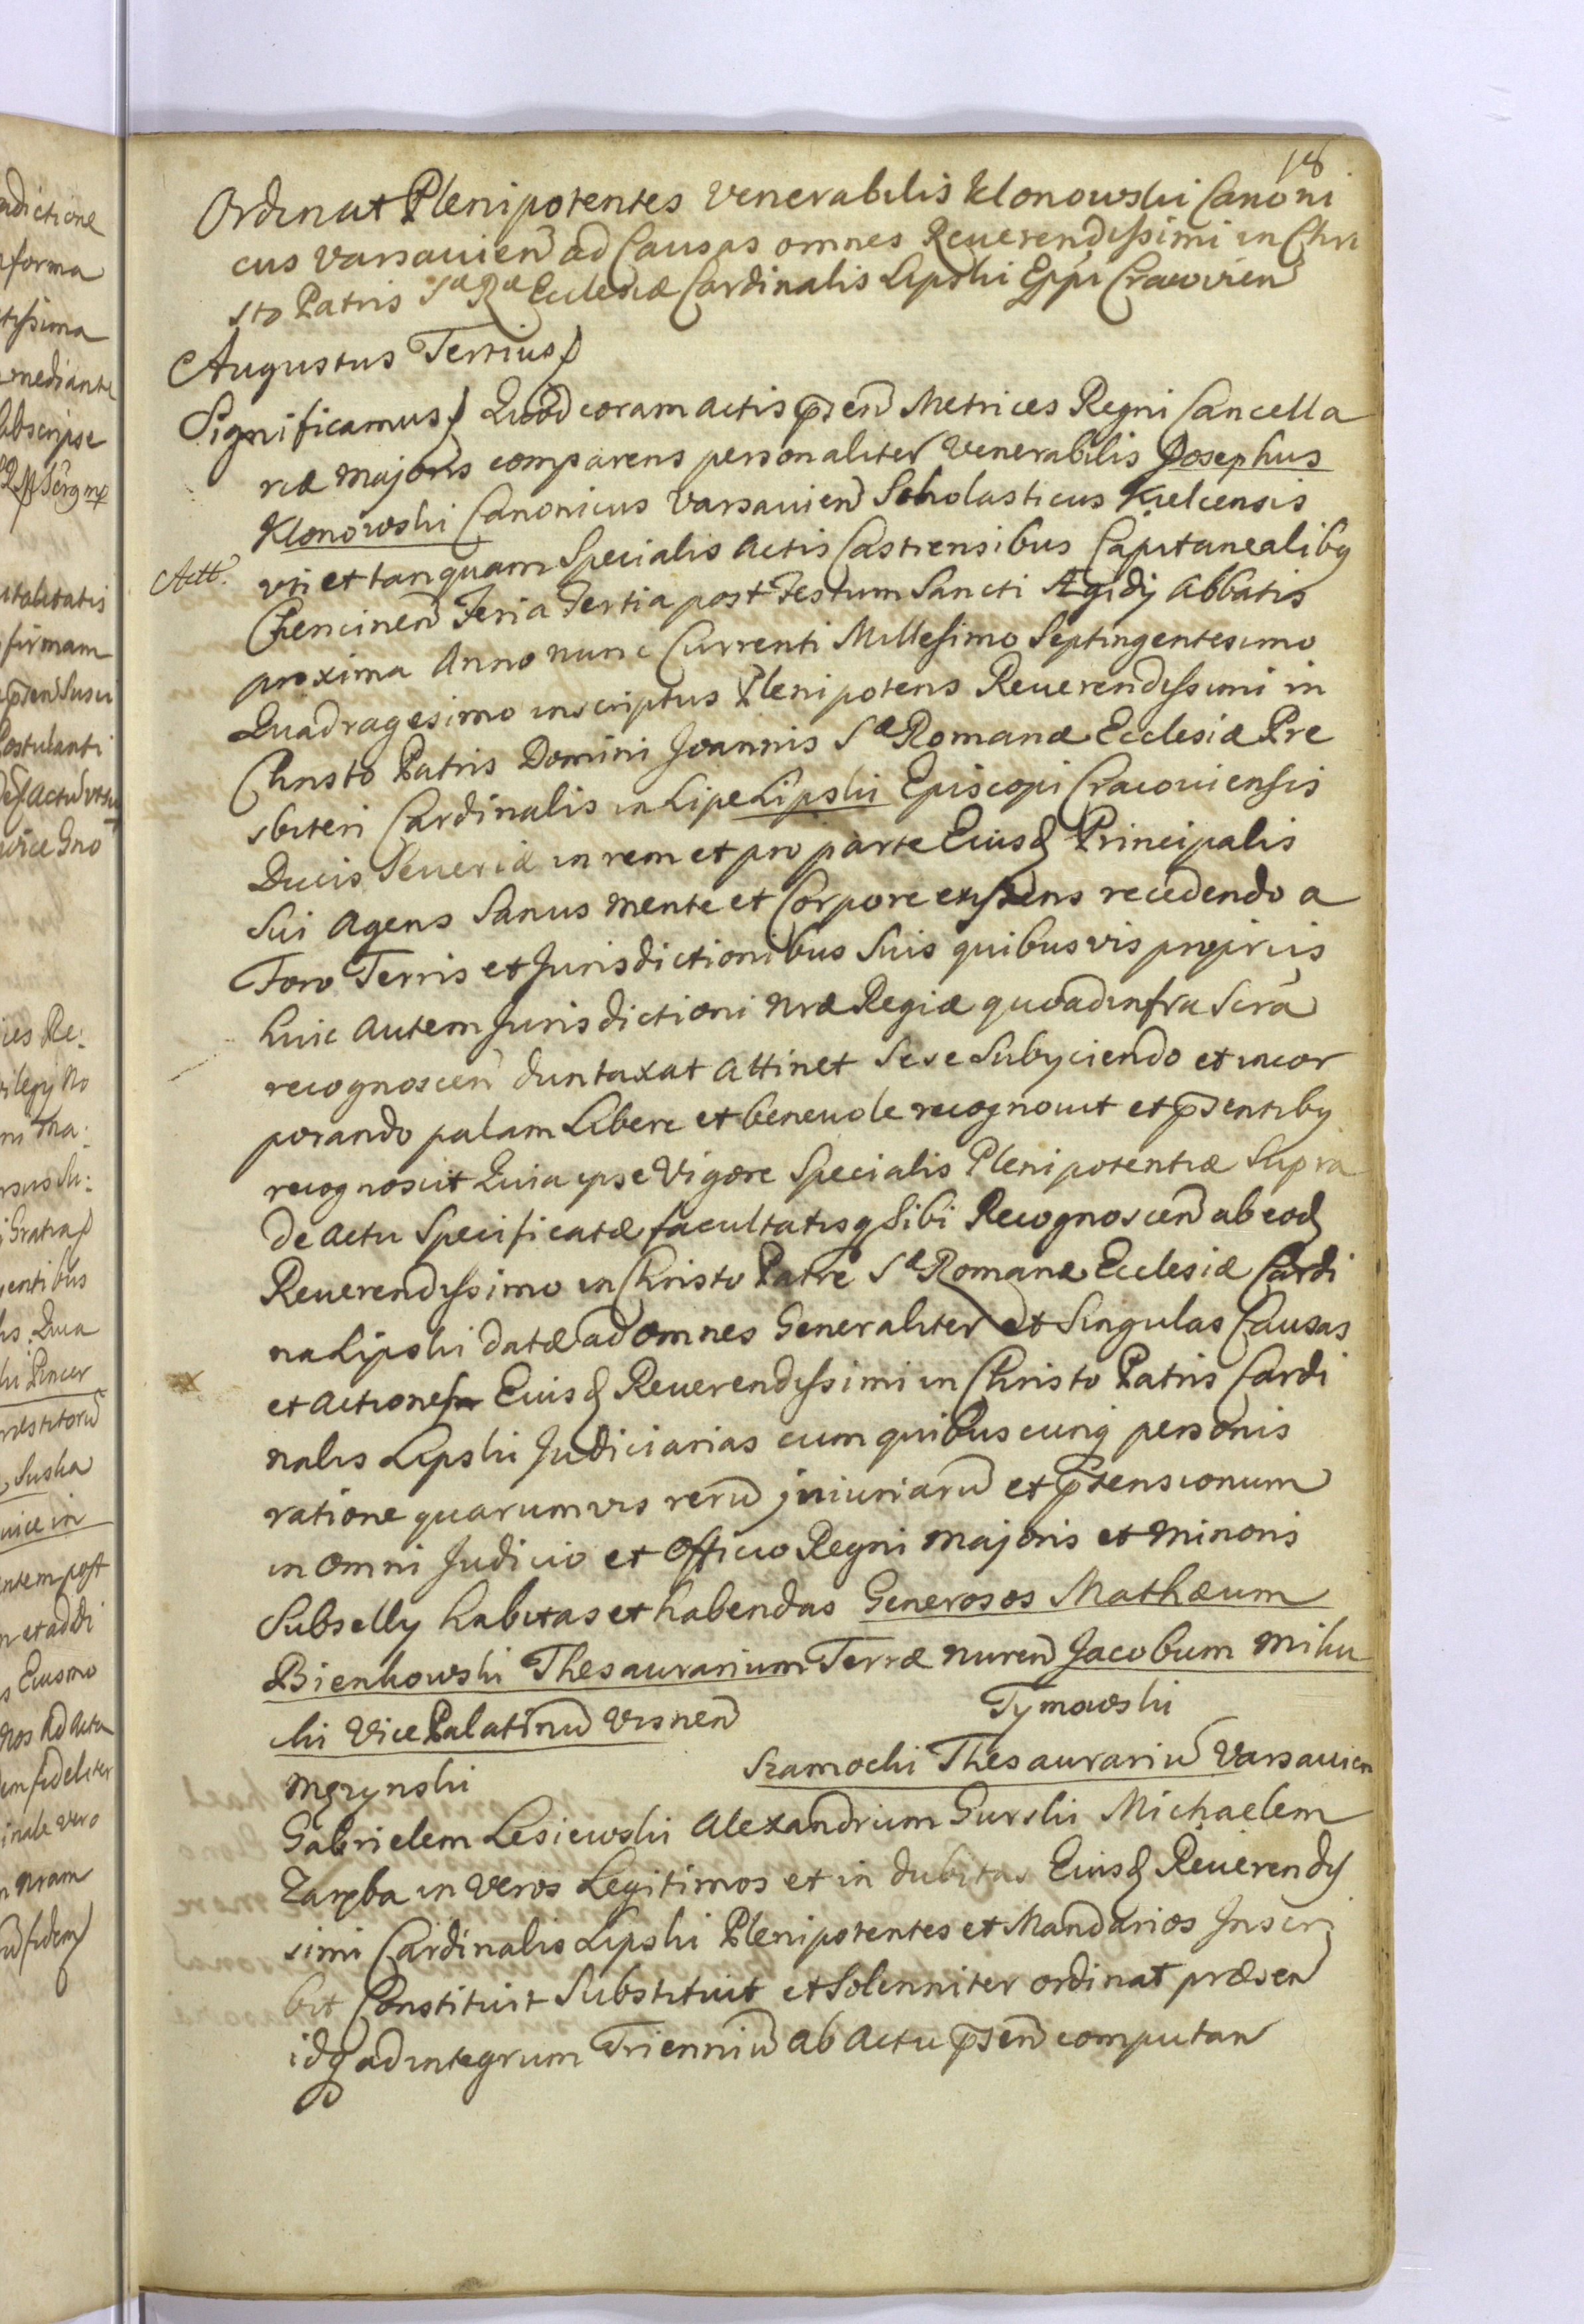 18
Ordinat Plenipotentes Venerabilis Klonowski Canoni
cus Varsavien ad Causas omnes Reverendissimi in Chri
sto Patris Sæ Ræ Ecclesiæ Cardinalis Lipski Eppi Cracovien
Augustus Tertius
Significamus Quod coram actis pñten Metrices Regni Cancella
riæ Majoris comparens personaliter Venerabilis Josephus
Klonowski Canonicus Varsavien Scholasticus Kielcensis
Actt. uti et tanquam Specialis Actis Castrensibus Capitanealibq
Chencinen Feria Tertia post Festum Sancti Ægidij Abbatis
proxima Anno nunc Currenti Millesimo Septingentesimo
Quadragesimo inscriptus Plenipotens Reverendissimi in
Christo Patris Domini Joannis Sæ Romanæ Ecclesiæ Pre
sbiteri Cardinalis in Lipe Lipski Episcopi Cracoviensis
Ducis Severiæ in rem et pro parte Eiusd Principalis
Sui Agens Sanus mente et Corpore existens recedendo a
Foro Terris et Jurisdictionibus Suis quibusvis proprijs
huic autem Jurisdictioni nræ Regiæ quoad infra Scra
recognoscen duntaxat attinet Sese Subyciendo et incor
porando palam Libere et benevole recognovit et pñsentibq
recognoscit Quia ipse Vigore Specialis Plenipotentiæ Supra
de actu Specificatæ facultatisq Sibi Recognoscen ab eod
Reverendissimo in Christo Patre Sæ Romanæ Ecclesiæ Cardi
na Lipski datæ ad omnes Generaliter et Singulas Causas
et actiones Eiusd Reverendissimi in Christo Patris Cardi
nalis Lipski Judiciarias cum quibuscunq personis
ratione quarumvis reru injuriaru et pñtensionum
in omni Judicio et Officio Regni majoris et minoris
Subselly habitas et habendas Generosos Mathæum
Bienkowski Thesaurarium Terræ Nuren Jacobum Miku
lki Vice Palatinu Visnen Tymowski
Mgzynski Szamocki Thesaurariu Varsavien
Gabrielem Lesiewski Alexandrum Gurski Michaelem
Zaręba in Veros Legitimos et in dubitas Eiusd Reverendis
simi Cardinalis Lipski Plenipotentes et Mandarios Inscri
bit Constituit Substituit et Solenniter ordinat præsen
idq ad integrum Trienniu ab Actu pñsen computan